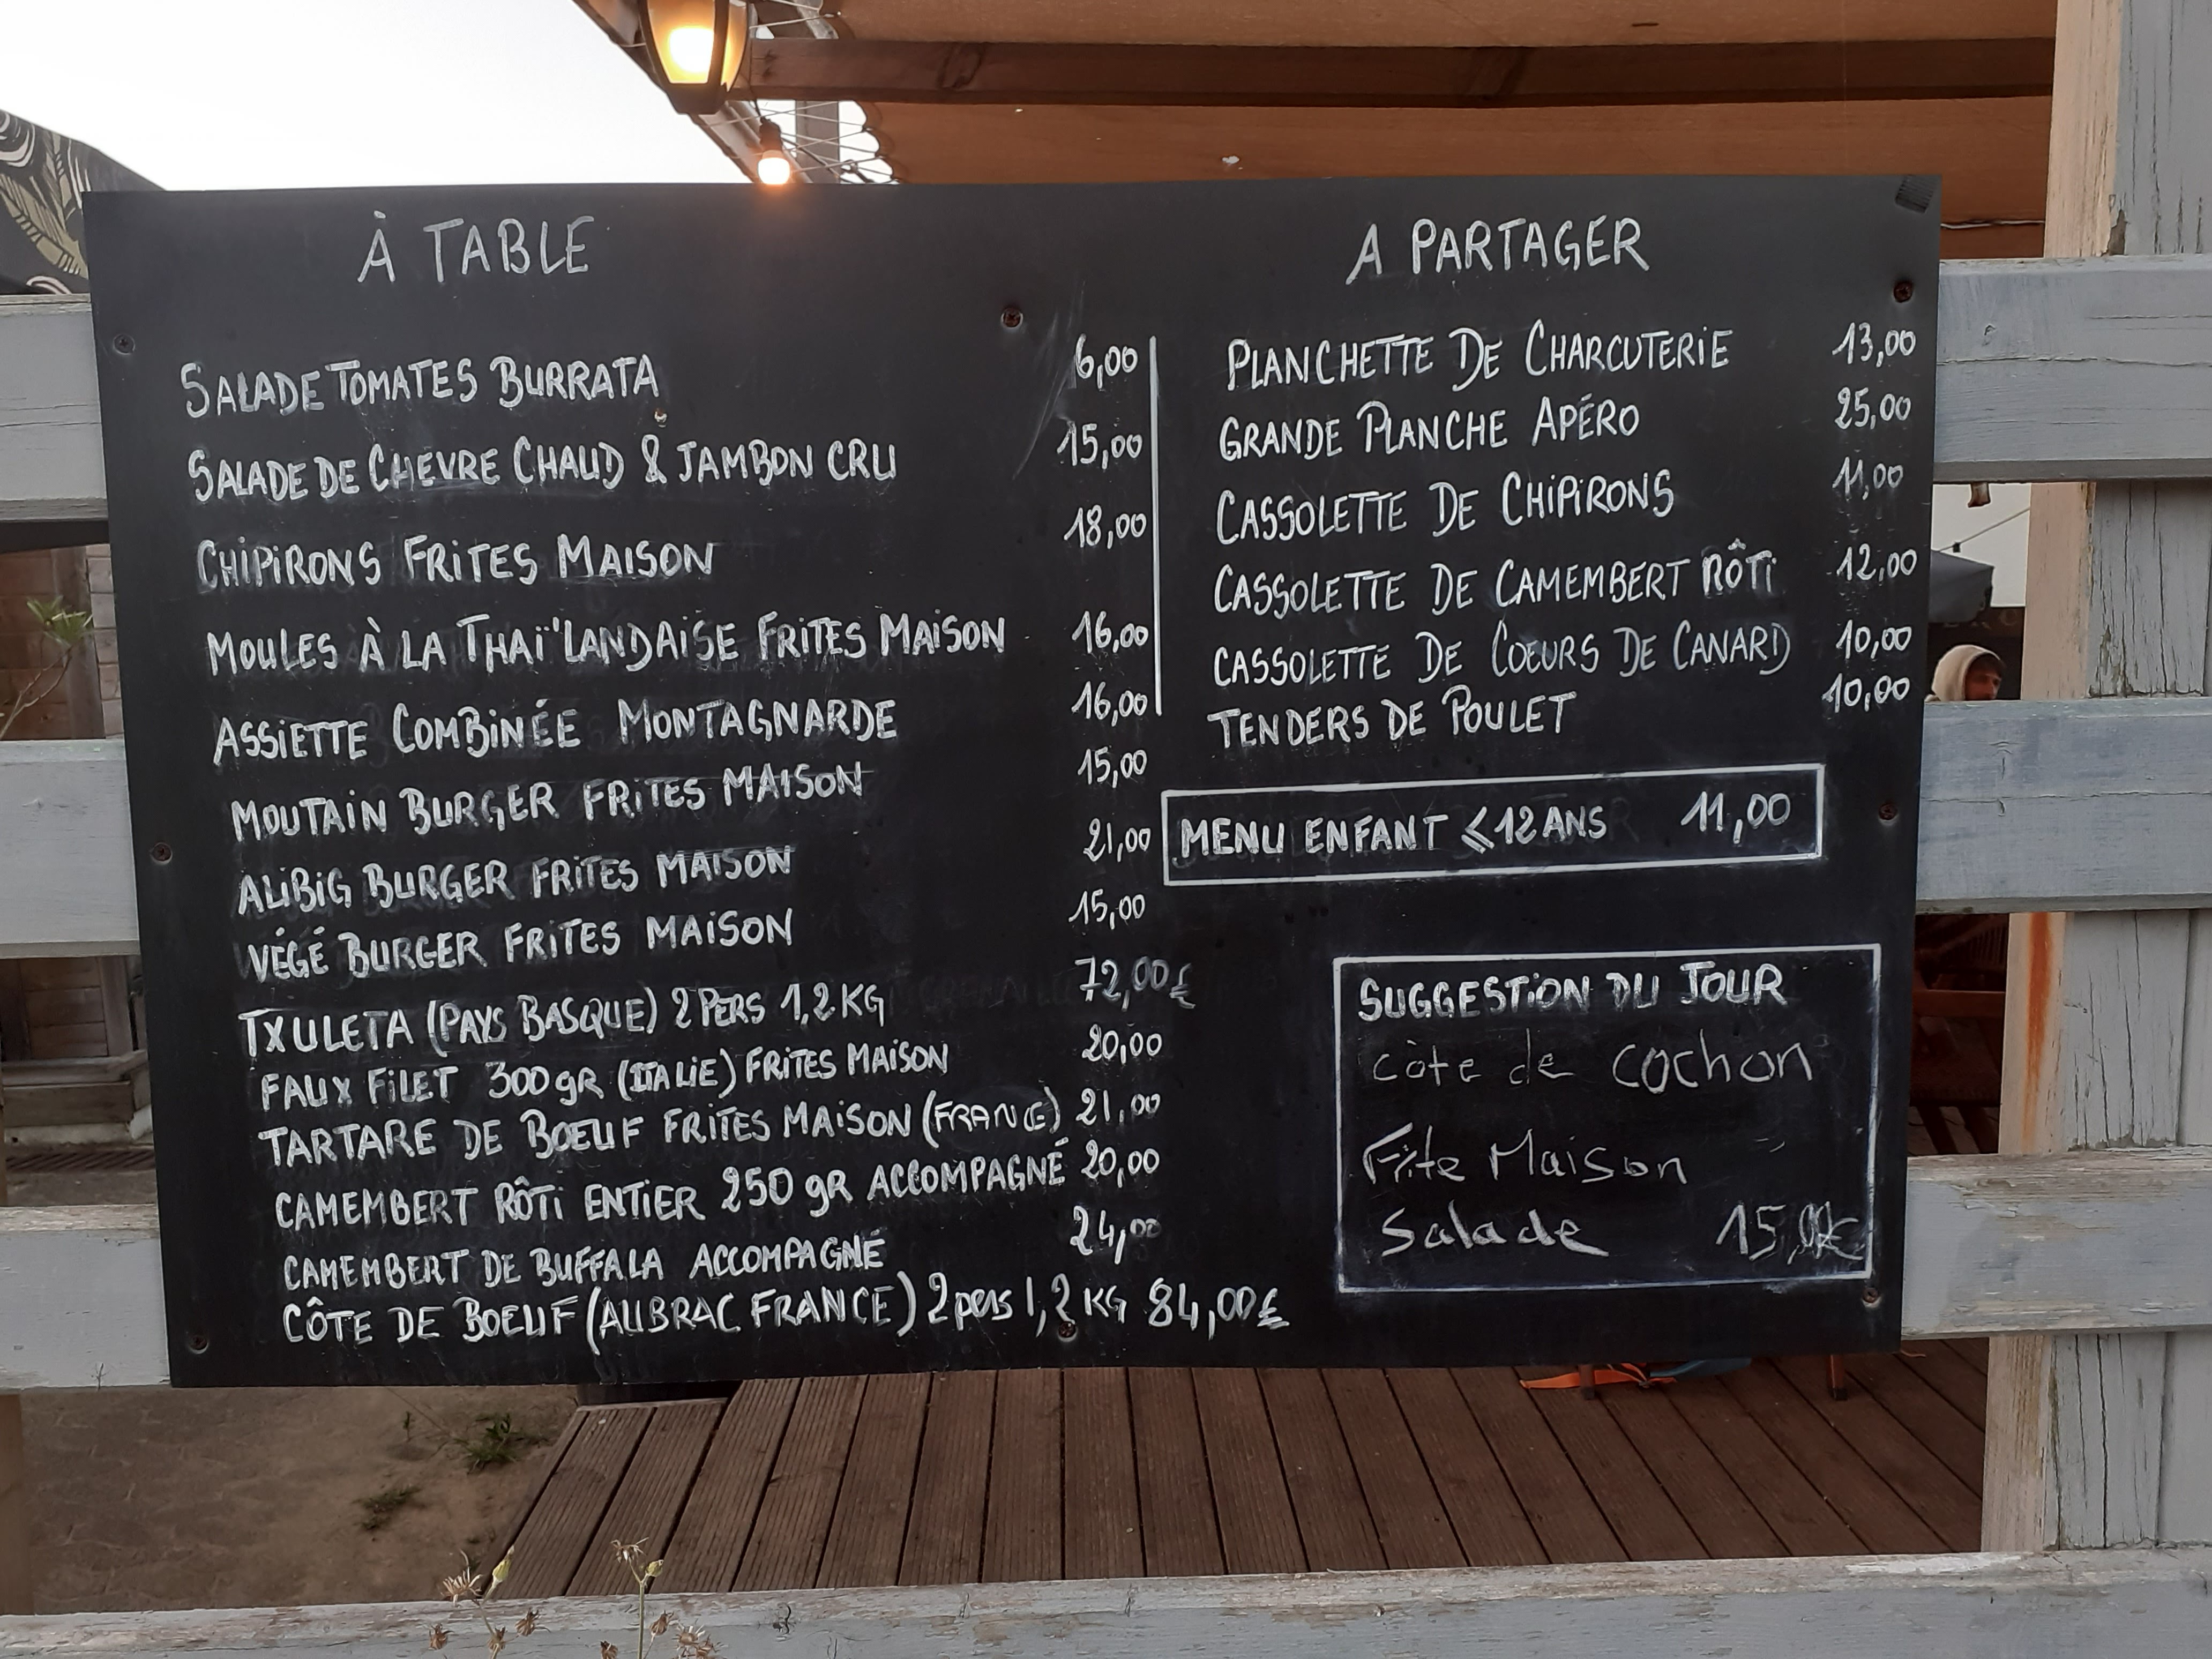 À TABLE
SALADE TOMATES BURRATA 6,00
SALADE DE CHEVRE CHAUD & JAMBON CRU 15,00
CHIPIRONS FRITES MAISON 18,00
MOULES À LA THAÏ'LANDAISE FRITES MAISON 16,00
ASSIETTE COMBINÉE MONTAGNARDE 16,00
MOUTAIN BURGER FRITES MAISON 15,00
ALIBIG BURGER FRITES MAISON 21,00
VÉGÉ BURGER FRITES MAISON 15,00
TXULETA (PAYS BASQUE) 2 PERS 1,2 KG 72,00£
FAUX FILET 300 gR (ITALIE) FRITES MAISON 20,00
TARTARE DE BOEUF FRITES MAISON (FRANCE) 21,00
CAMEMBERT RÔTI ENTIER 250 gR ACCOMPAGNÉ 20,00
CAMEMBERT DE BUFFALA ACCOMPAGNÉ 24,00
CÔTE DE BOEUF (AUBRAC FRANCE) 2 pers 1,2 KG 84,00£
A PARTAGER
PLANCHETTE DE CHARCUTERIE 13,00
GRANDE PLANCHE APÉRO 25,00
CASSOLETTE DE CHIPIRONS 11,00
CASSOLETTE DE CAMEMBERT RÔTI 12,00
CASSOLETTE DE COEURS DE CANARD 10,00
TENDERS DE POULET 10,00
MENU ENFANT ⩽12 ANS 11,00
SUGGESTION DU JOUR
côte de cochon
Frite Maison
Salade 15,00€